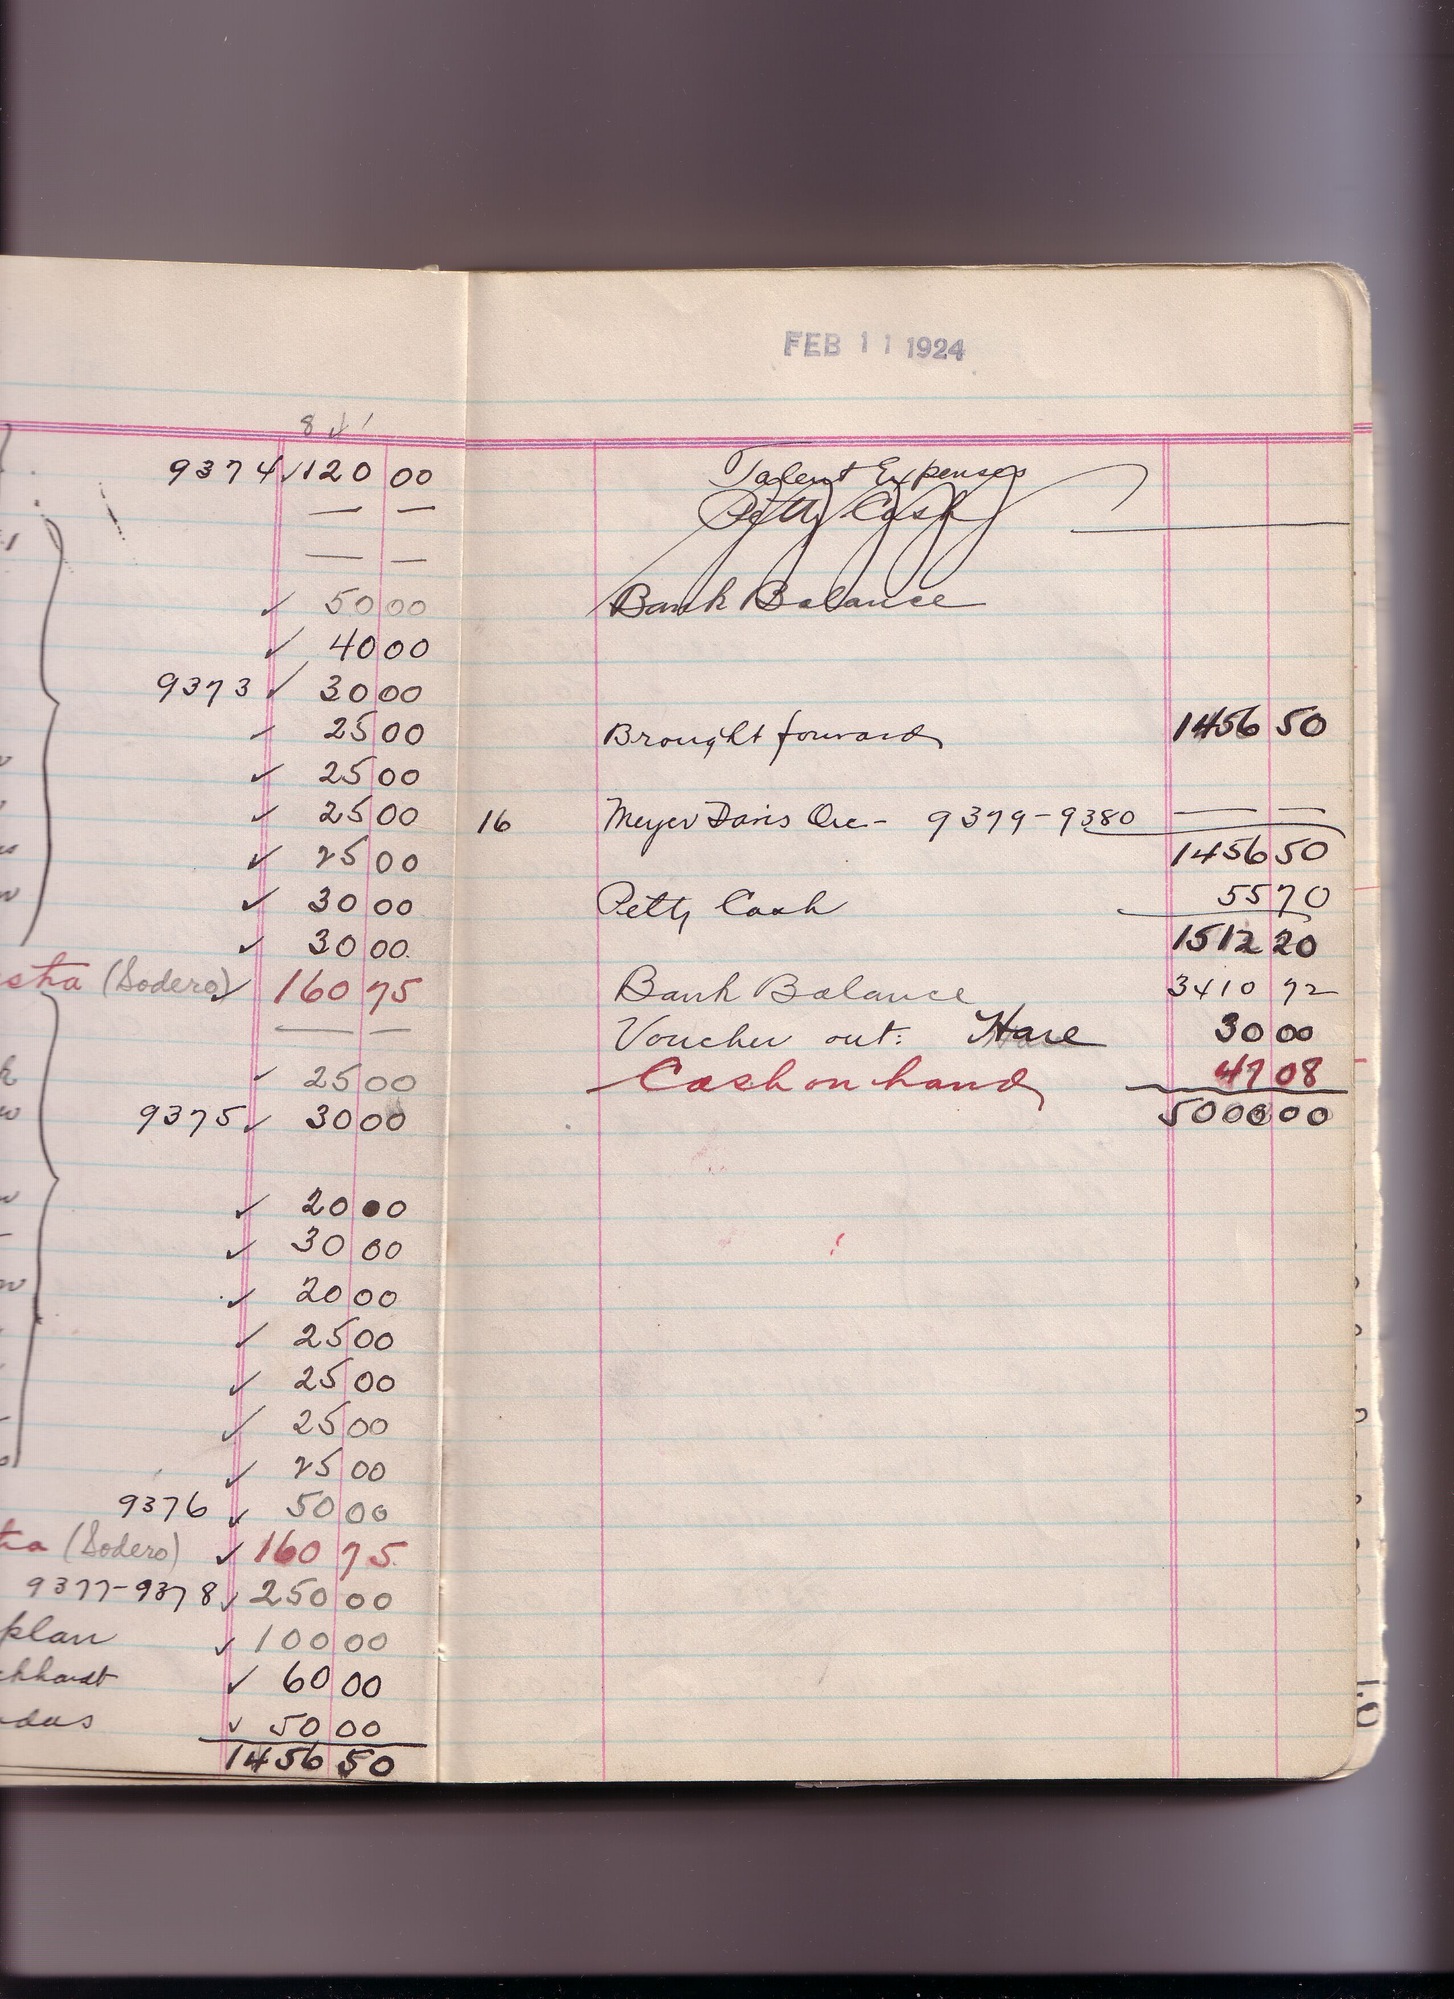 8
9374 ✓ 120 00
— —
— —
✓ 50 00
✓ 40 00
9373 ✓ 30 00
✓ 25 00
✓ 25 00
✓ 25 00
✓ 25 00
✓ 30 00
✓ 30 00
(Sodero) ✓ 160 75
— —
✓ 25 00
9375 ✓ 30 00
✓ 20 00
✓ 30 00
✓ 20 00
✓ 25 00
✓ 25 00
✓ 25 00
✓ 25 00
9376 ✓ 50 00
(Sodero) ✓ 160 75
9377-9378 ✓ 250 00
plan ✓ 100 00
✓ 60 00
✓ 50 00
1456 50
FEB 11 1924
Talent Expenses
Petty Cash
Bank Balance
Brought forward 1456 50
16 Meyer Davis Orc- 9379-9380 — —
1456 50
Petty Cash 55 70
1512 20
Bank Balance 3410 72
Voucher out: Hare 30 00
Cash on hand 47 08
5000 00